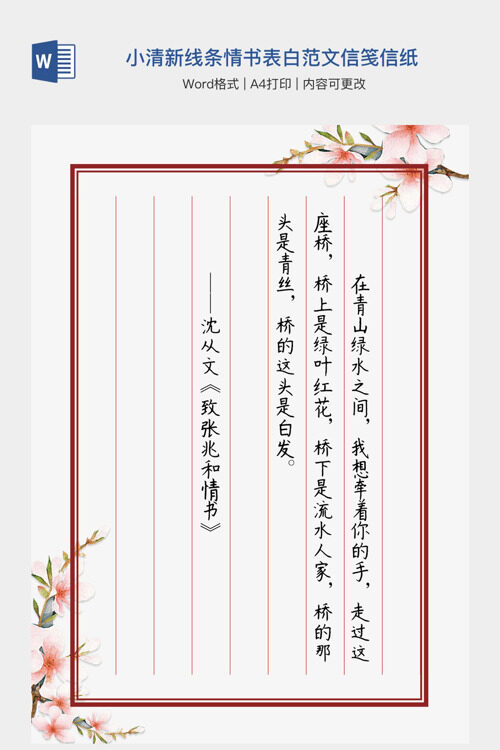 W
小清新线条情书表白范文信笺信纸
Word格式 | A4打印 | 内容可更改
在青山绿水之间，我想牵着你的手，走过这
座桥，桥上是绿叶红花，桥下是流水人家，桥的那
头是青丝，桥的这头是白发。
——沈从文《致张兆和情书》